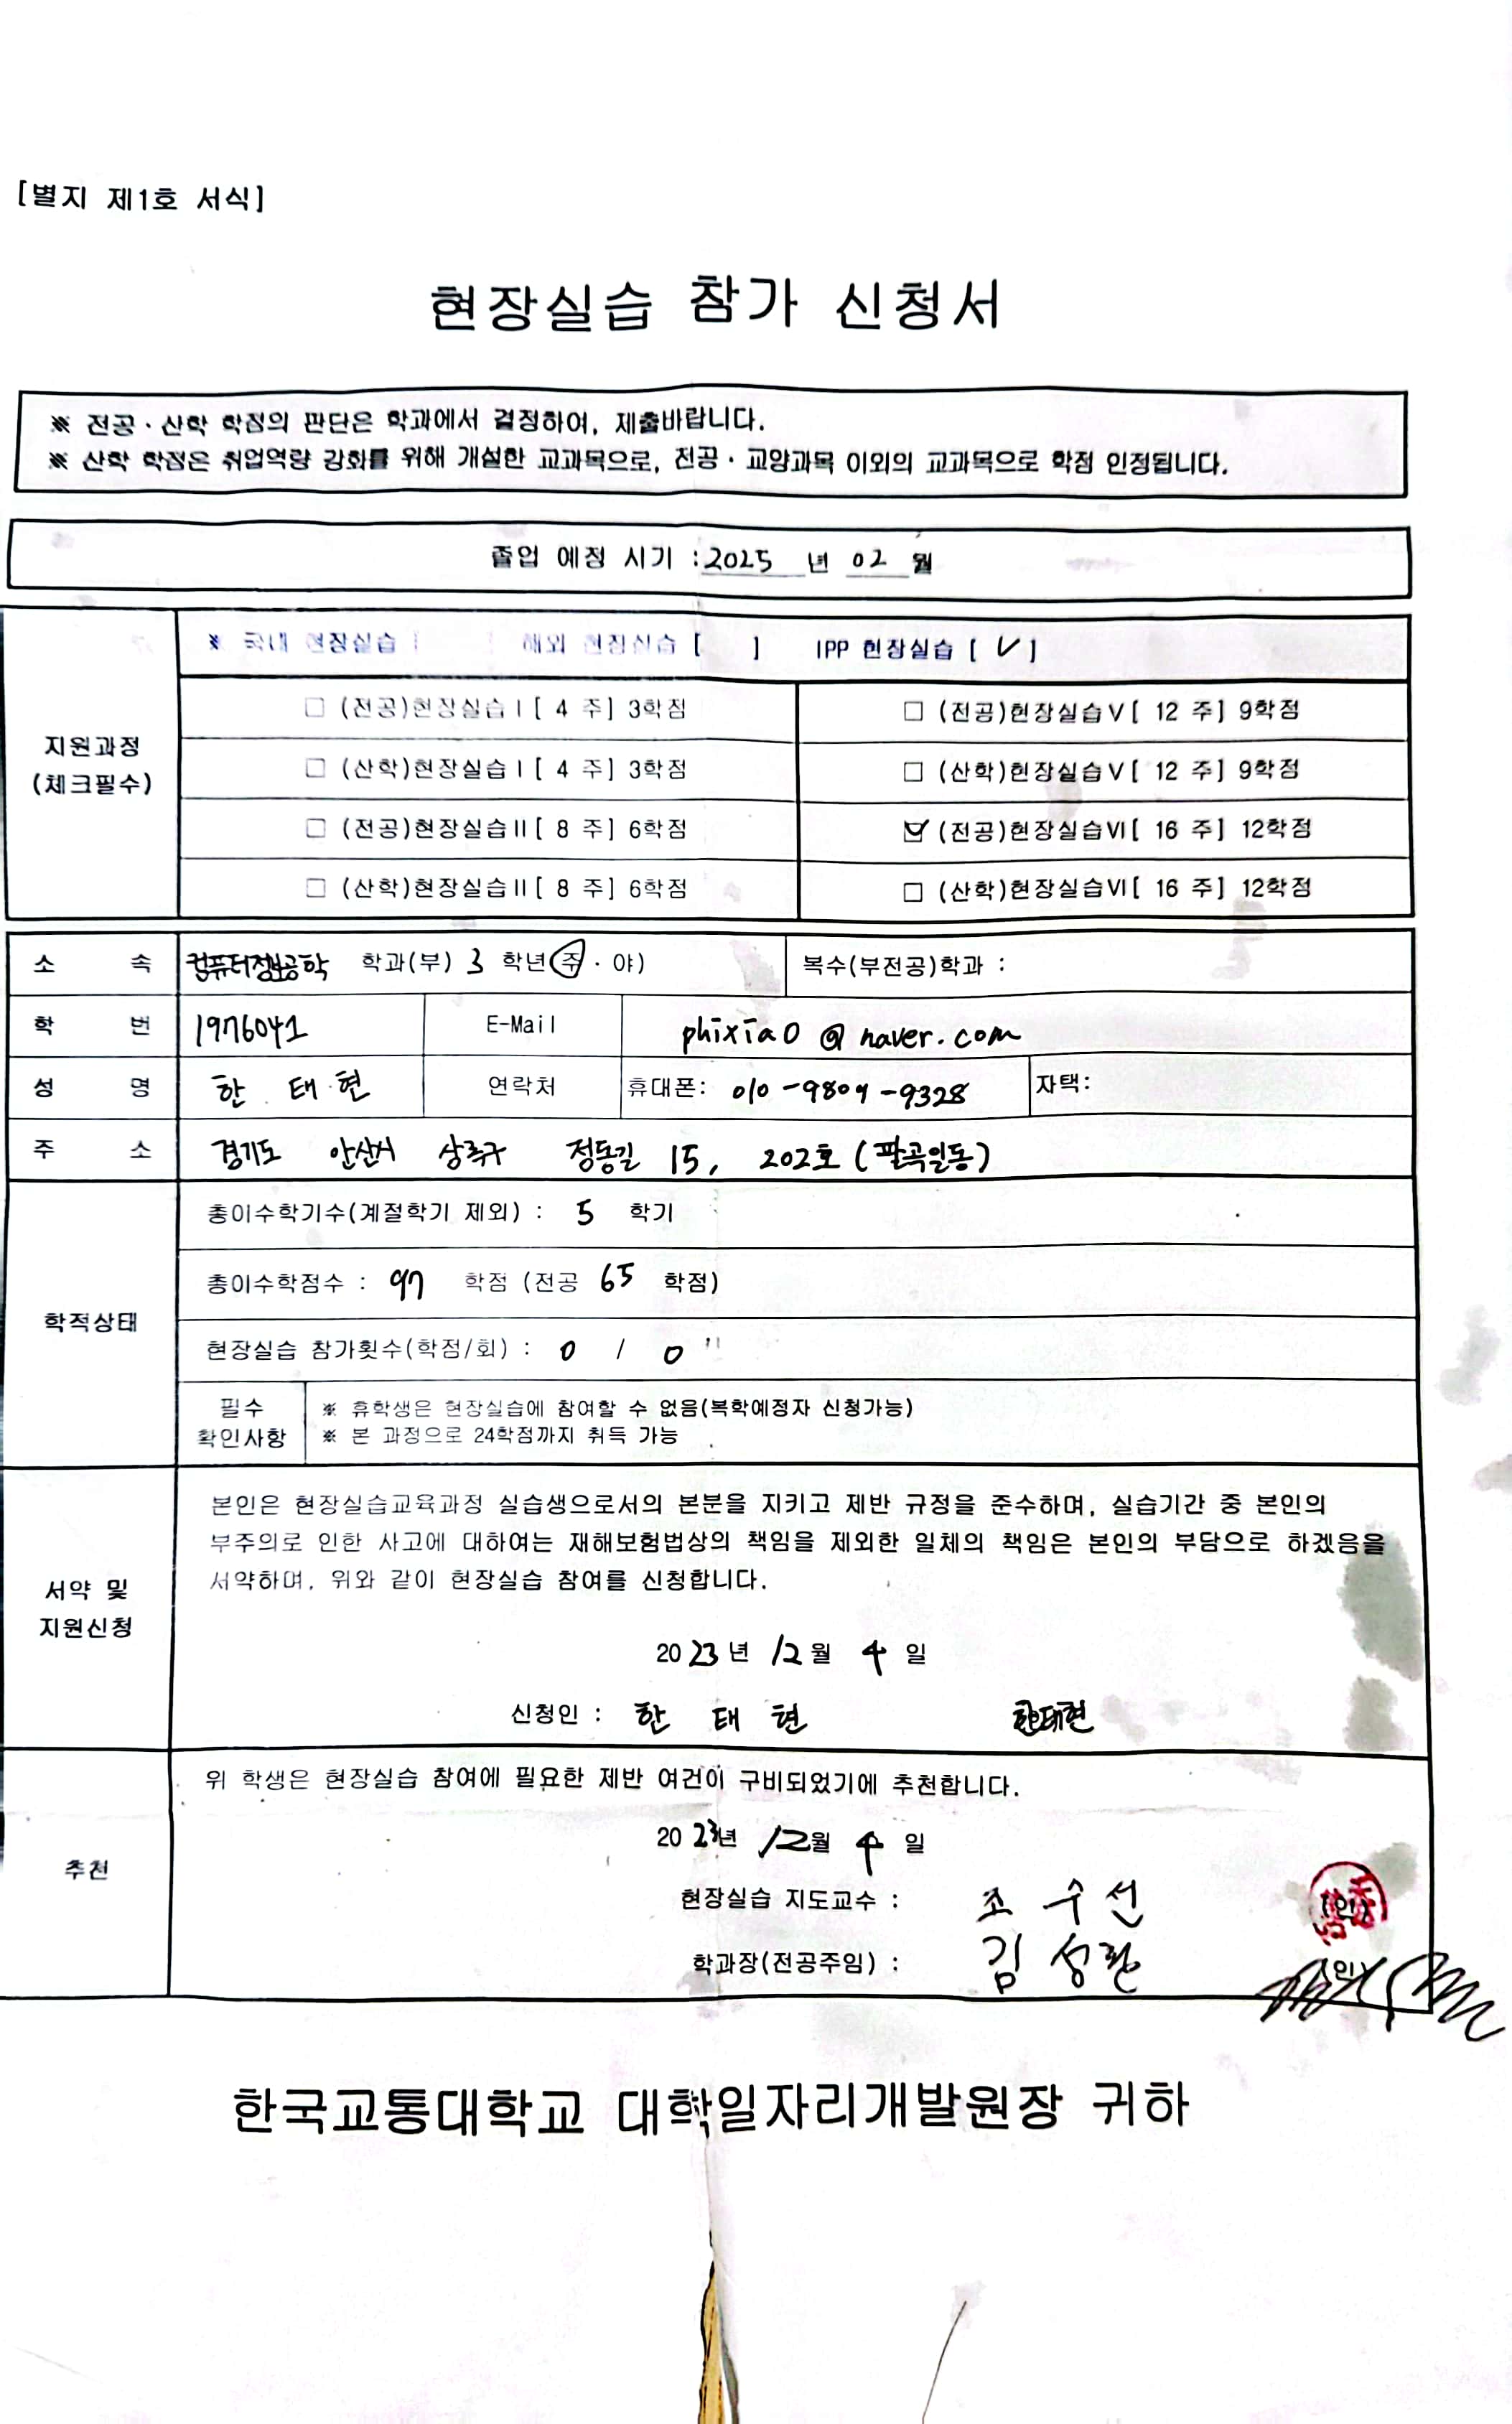 [별지 제1호 서식]
현장실습 참가 신청서
※ 전공·산학 학점의 판단은 학과에서 결정하여, 제출바랍니다.
※ 산학 학점은 취업역량 강화를 위해 개설한 교과목으로, 전공·교양과목 이외의 교과목으로 학점 인정됩니다.
졸업 예정 시기 : 2025 년 02 월
지원과정
(체크필수)
※ 국내 현장실습 [ 해외 현장실습 [ ] IPP 현장실습 [ ✓ ]
☐ (전공)현장실습Ⅰ[ 4 주] 3학점 ☐ (전공)현장실습Ⅴ[ 12 주] 9학점
☐ (산학)현장실습Ⅰ[ 4 주] 3학점 ☐ (산학)현장실습Ⅴ[ 12 주] 9학점
☐ (전공)현장실습Ⅱ[ 8 주] 6학점 ☑ (전공)현장실습Ⅵ[ 16 주] 12학점
☐ (산학)현장실습Ⅱ[ 8 주] 6학점 ☐ (산학)현장실습Ⅵ[ 16 주] 12학점
소 속 컴퓨터정보공학 학과(부) 3 학년(주·야) 복수(부전공)학과 :
학 번 1976041 E-Mail phixia0@naver.com
성 명 한 태 현 연락처 휴대폰: 010-9809-9328 자택:
주 소 경기도 안산시 상록구 정동길 15, 202호 (팔곡일동)
학적상태
총이수학기수(계절학기 제외) : 5 학기
총이수학점수 : 97 학점 (전공 65 학점)
현장실습 참가횟수(학점/회) : 0 / 0
필수
확인사항
※ 휴학생은 현장실습에 참여할 수 없음(복학예정자 신청가능)
※ 본 과정으로 24학점까지 취득 가능
서약 및
지원신청
본인은 현장실습교육과정 실습생으로서의 본분을 지키고 제반 규정을 준수하며, 실습기간 중 본인의
부주의로 인한 사고에 대하여는 재해보험법상의 책임을 제외한 일체의 책임은 본인의 부담으로 하겠음을
서약하며, 위와 같이 현장실습 참여를 신청합니다.
2023년 12월 4일
신청인 : 한 태 현 한태현
추천
위 학생은 현장실습 참여에 필요한 제반 여건이 구비되었기에 추천합니다.
2023년 12월 4일
현장실습 지도교수 : 조 수 선 (인)
학과장(전공주임) : 김 성 환 (인)
한국교통대학교 대학일자리개발원장 귀하